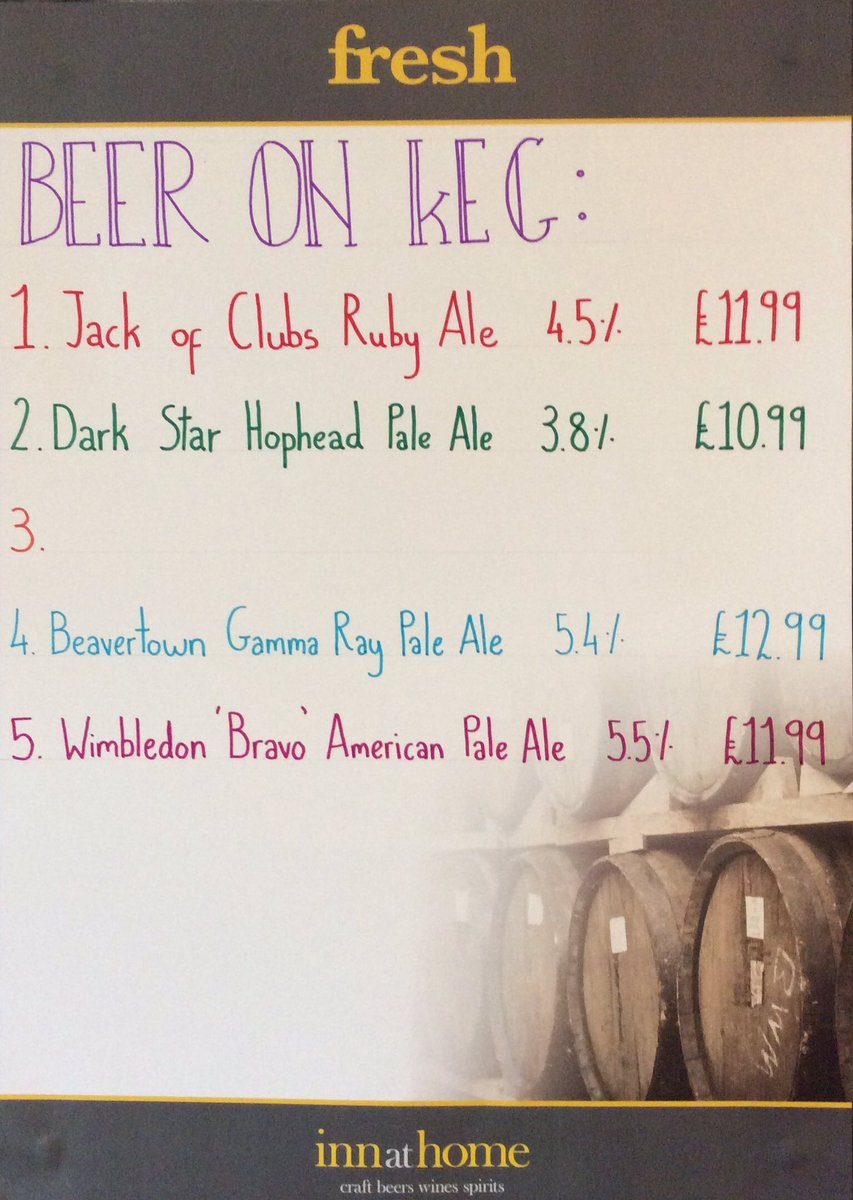 fresh
BEER ON KEG:
1. Jack of Clubs Ruby Ale 4.5% £11.99
2. Dark Star Hophead Pale Ale 3.8% £10.99
3.
4. Beavertown Gamma Ray Pale Ale 5.4% £12.99
5. Wimbledon 'Bravo' American Pale Ale 5.5% £11.99
WMJ
inn at home
craft beers wines spirits